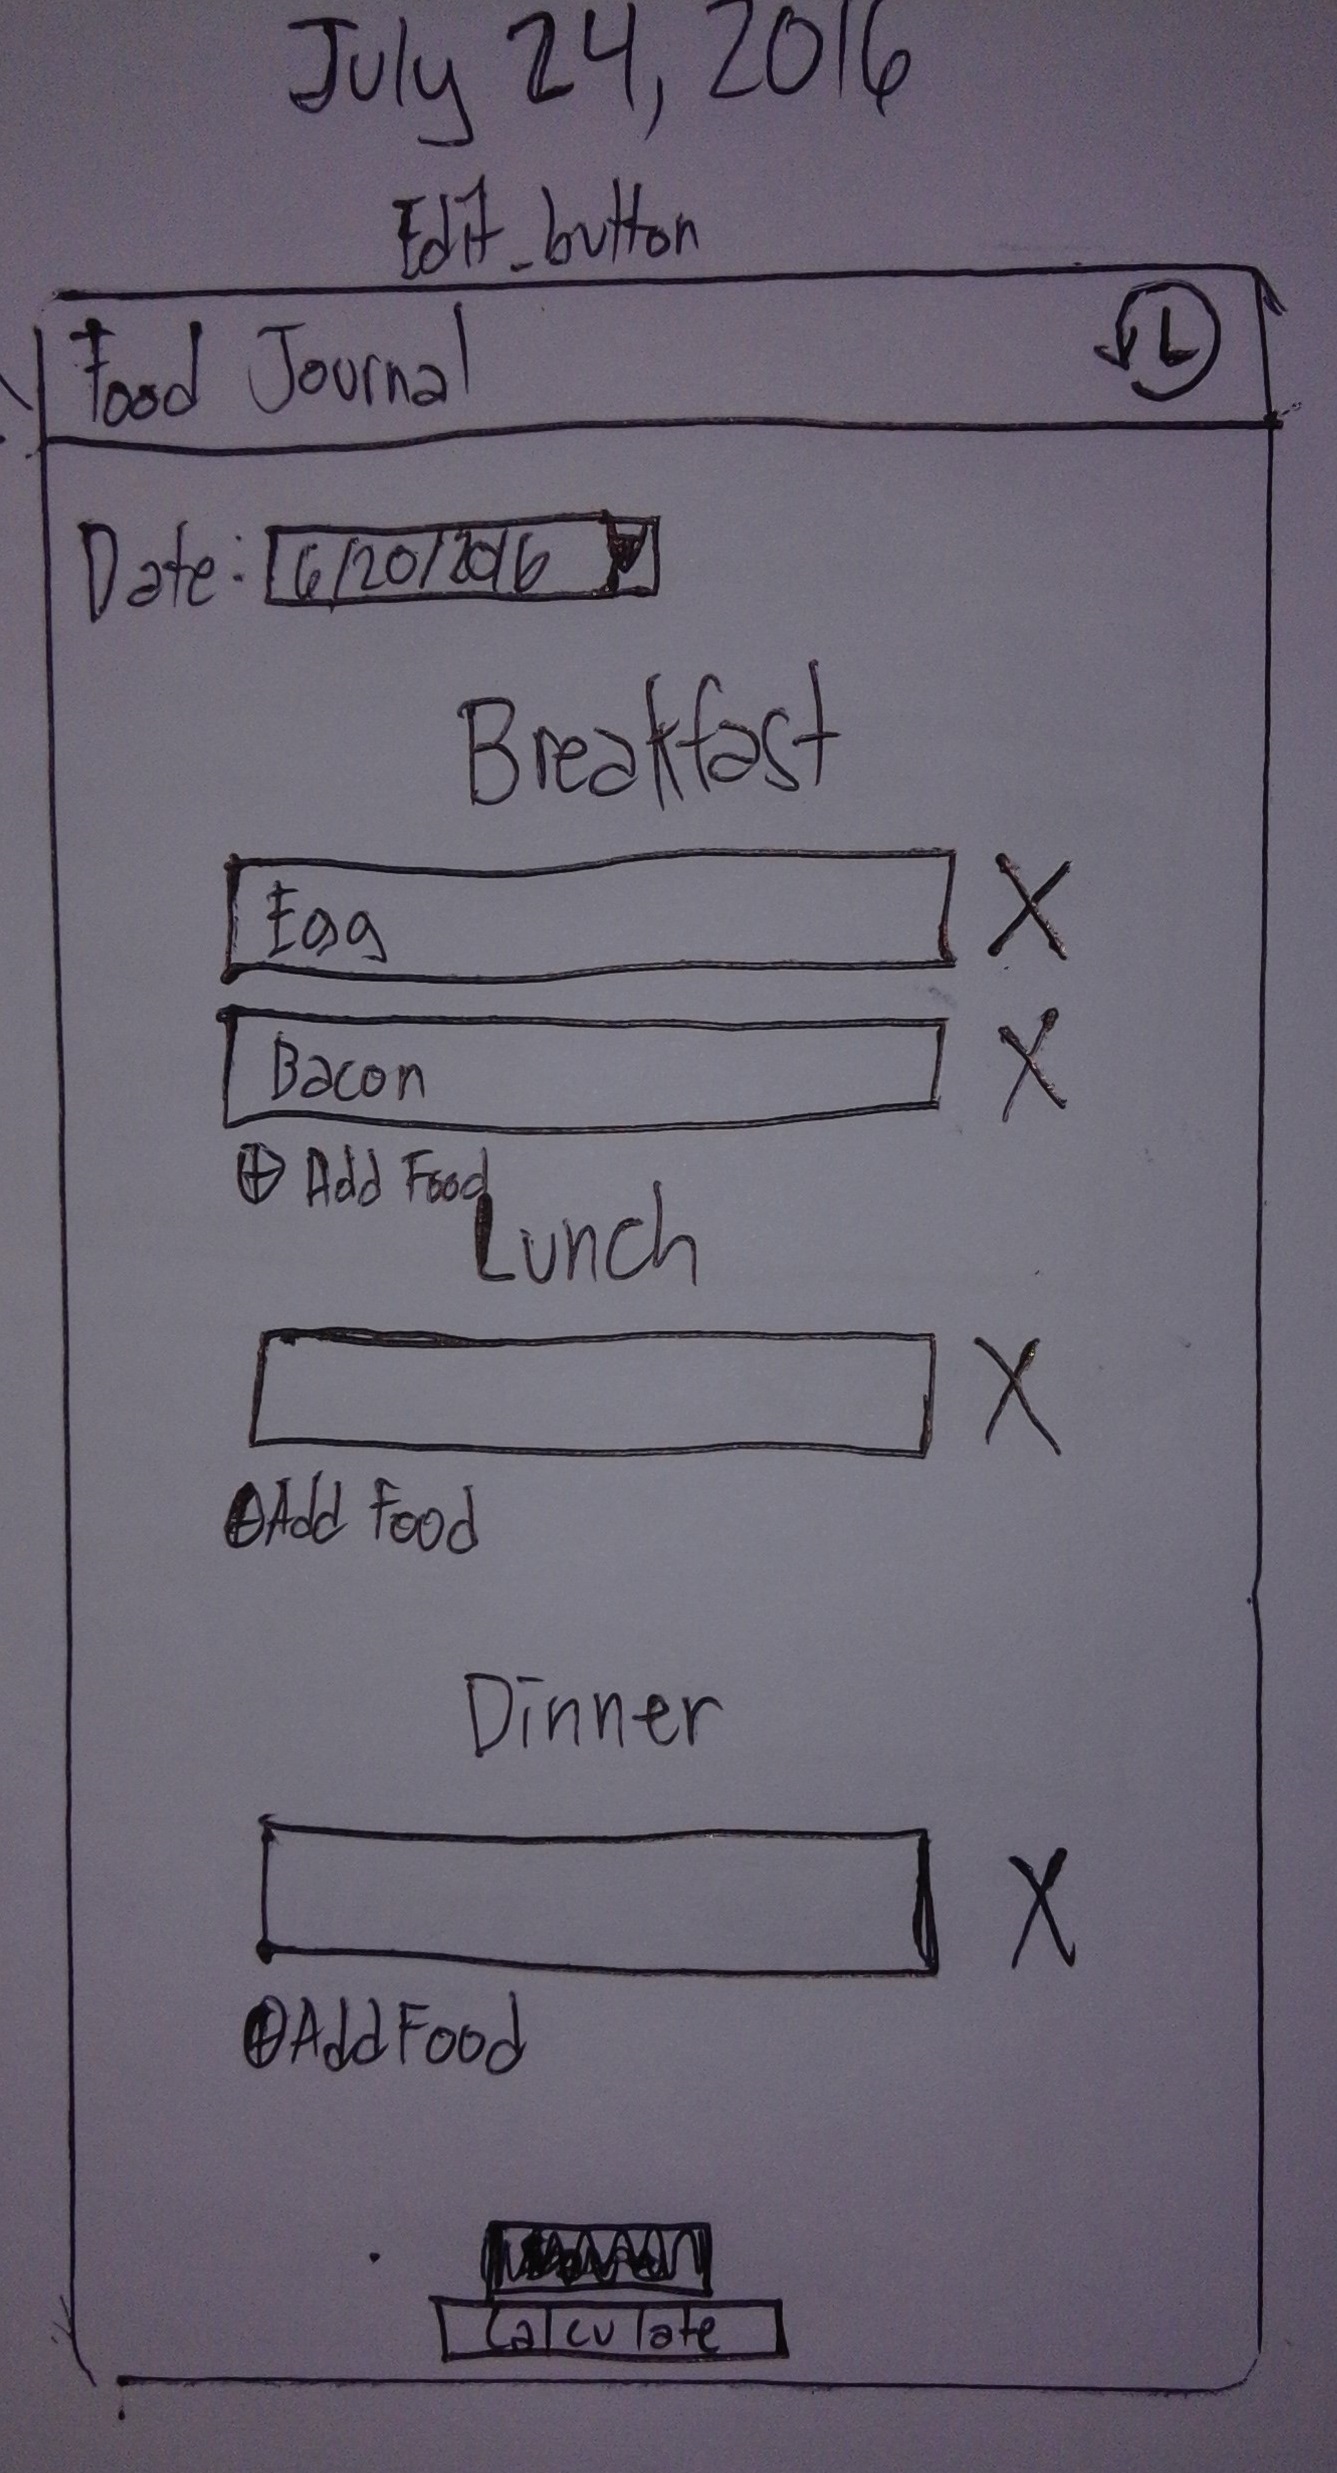 July 24, 2016
Edit_button
Food Journal
Date: 6/20/2016
Breakfast
Egg X
Bacon X
Add Food
Lunch
X
Add Food
Dinner
X
Add Food
Calculate